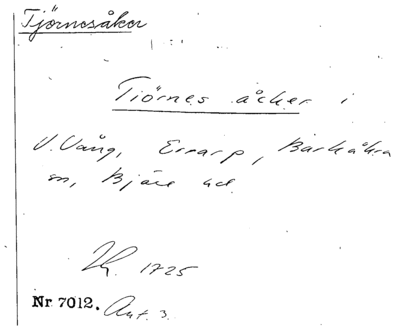 Tjörnesåker
Tiörnes åcker i
V. Vång, Errarp, Barkåkra
sn, Bjäre hd.
Lh. 1725
Nr 7012. Ant. 3.